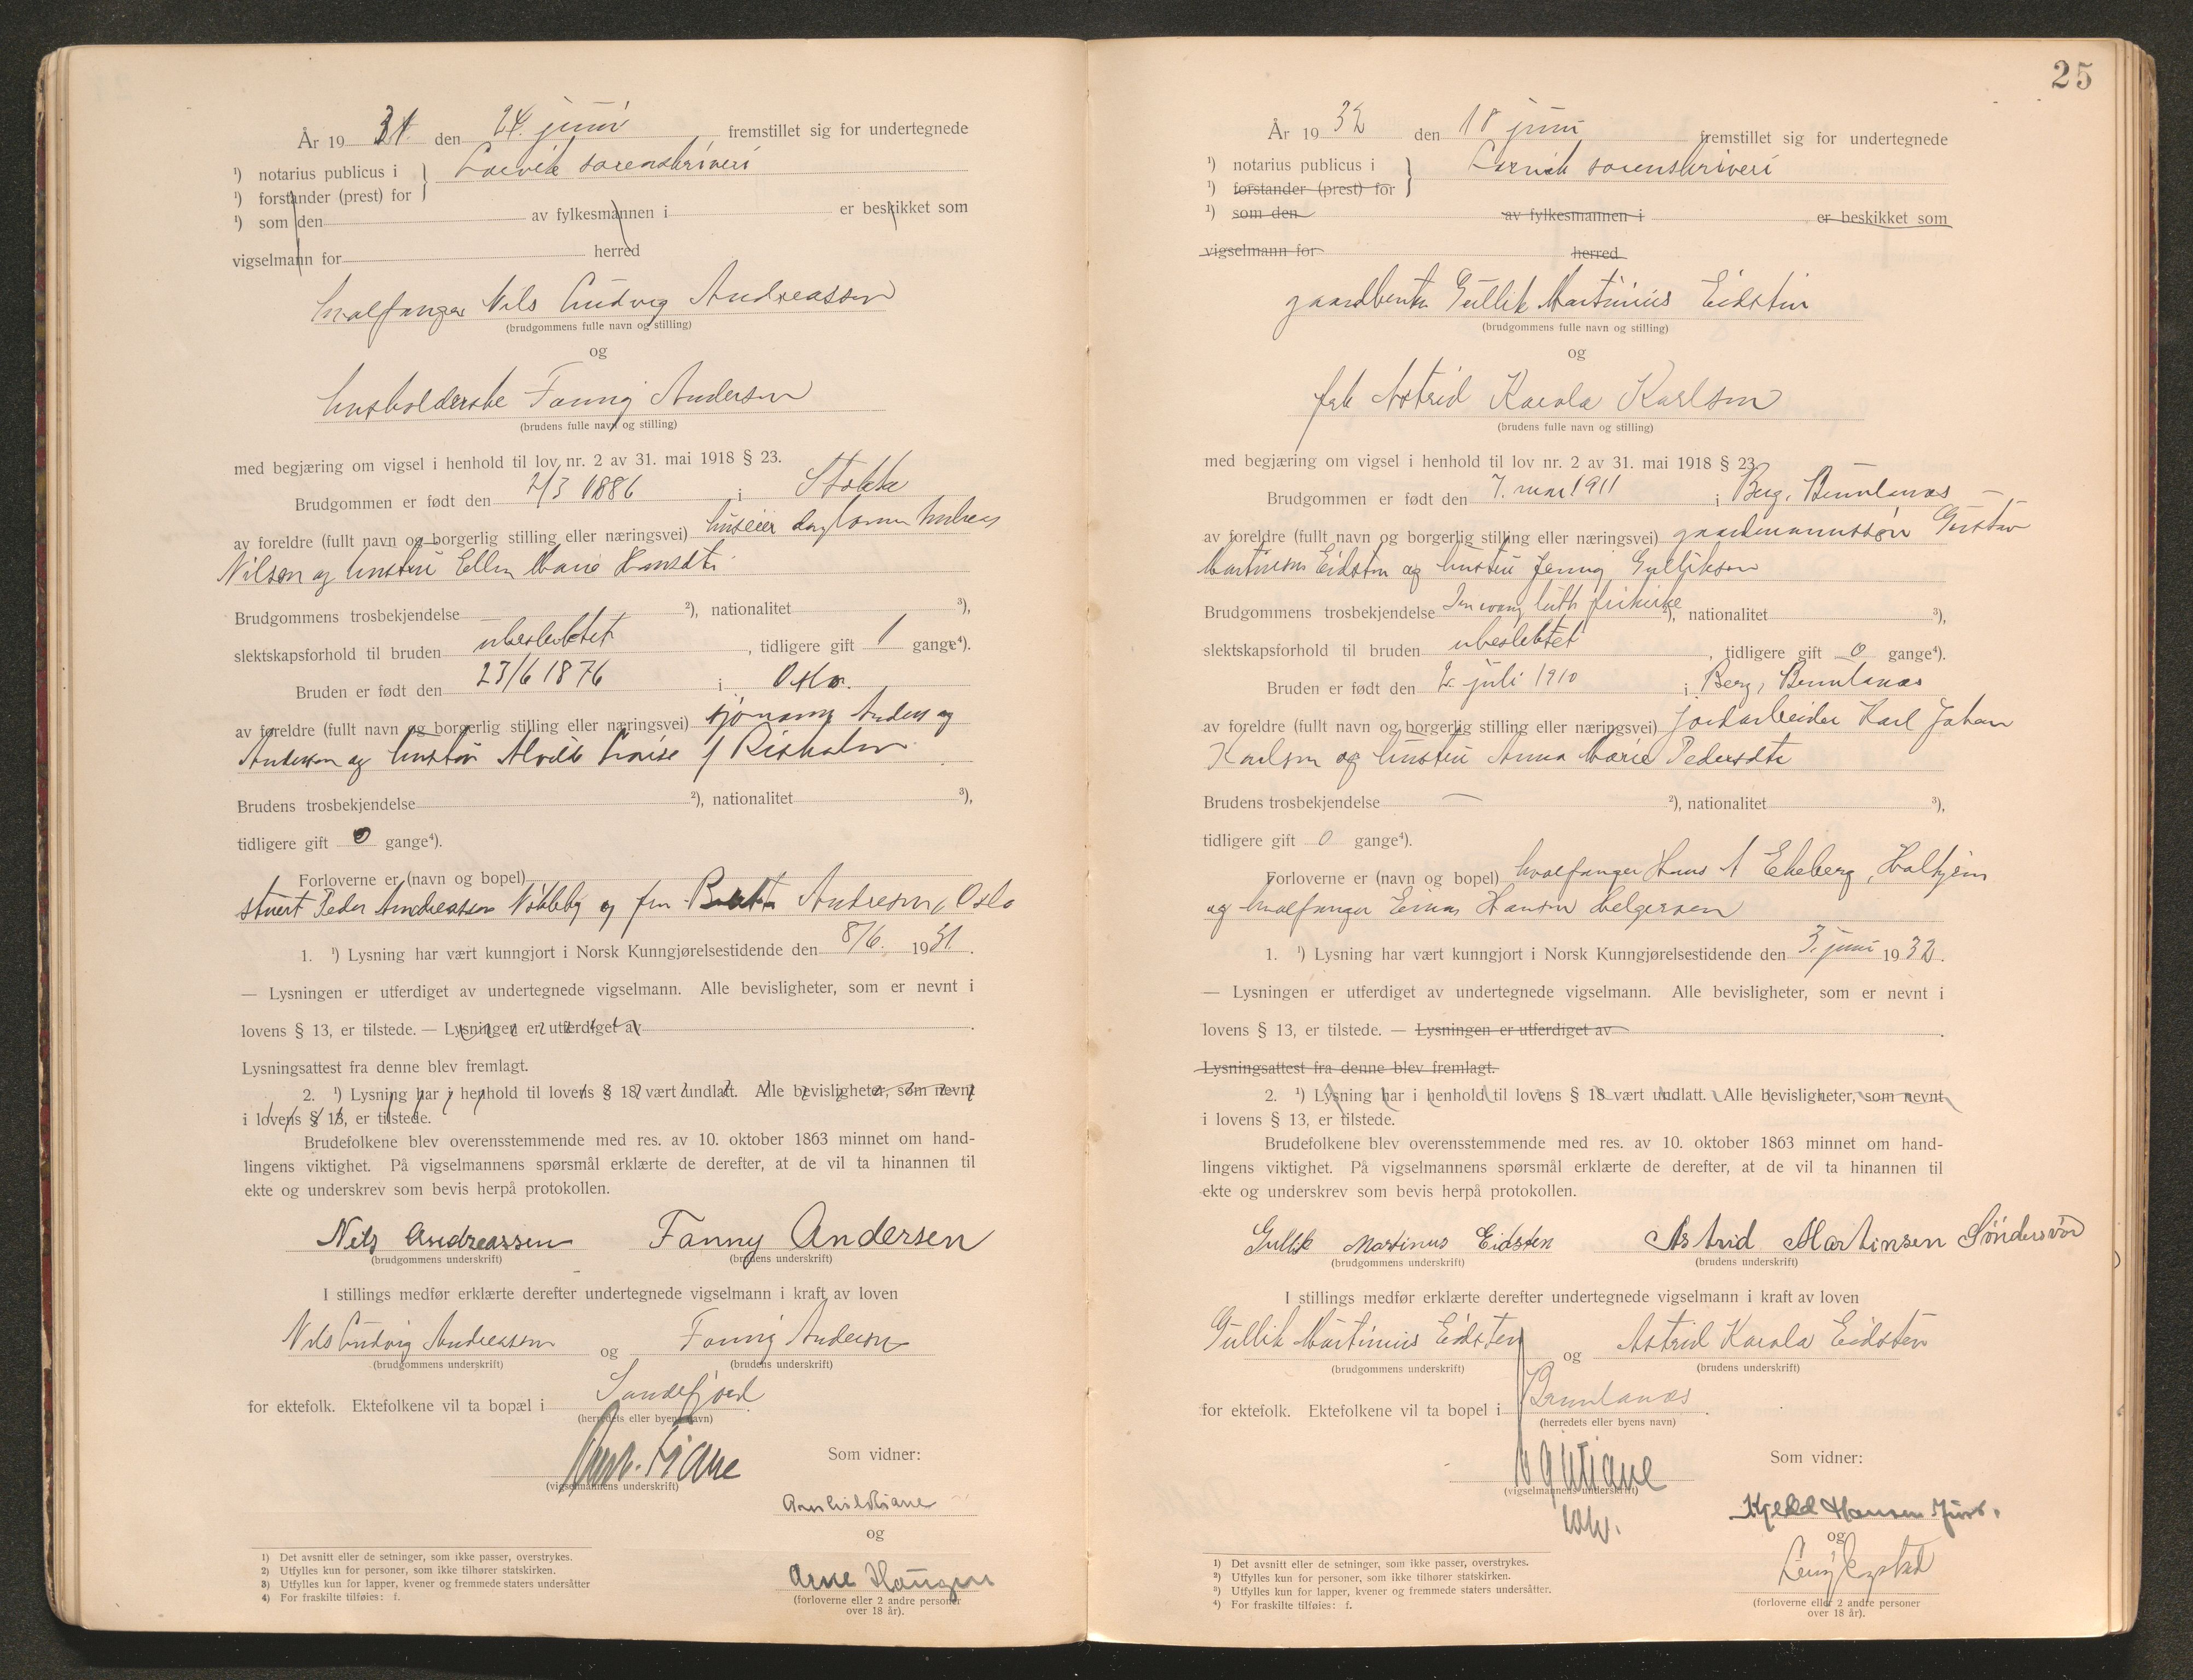 År 19 31 den 24. juni fremstillet sig for undertegnede
¹) notarius publicus i } Larvik sorenskriveri
¹) forstander (prest) for
¹) som den av fylkesmannen i er beskikket som
vigselmann for herred
hvalfanger Nils Ludvig Andreassen
(brudgommens fulle navn og stilling)
og
husholderske Fanny Andersen
(brudens fulle navn og stilling)
med begjæring om vigsel i henhold til lov nr. 2 av 31. mai 1918 § 23.
Brudgommen er født den 2/3 1886 i Stokke
av foreldre (fullt navn og borgerlig stilling eller næringsvei) huseier Andreas
Nilsen og hustru Ellen Marie Hansdtr
Brudgommens trosbekjendelse ²), nationalitet ³),
slektskapsforhold til bruden ubeslektet, tidligere gift 1 gange⁴).
Bruden er født den 23/6 1876 i Oslo.
av foreldre (fullt navn og borgerlig stilling eller næringsvei) sjømann Anders
Andersen og hustru Alvilde Lovise f
Brudens trosbekjendelse ²), nationalitet ³),
tidligere gift 0 gange⁴).
Forloverne er (navn og bopel)
stuert Peder Andreassen Nøkleby og fru Andresen, Oslo
1. ¹) Lysning har vært kunngjort i Norsk Kunngjørelsestidende den 8/6. 1931.
— Lysningen er utferdiget av undertegnede vigselmann. Alle bevisligheter, som er nevnt i
lovens § 13, er tilstede. — Lysningen er utferdiget av .
Lysningsattest fra denne blev fremlagt.
2. ¹) Lysning har i henhold til lovens § 18 vært undlatt. Alle bevisligheter, som nevnt
i lovens § 13, er tilstede.
Brudefolkene blev overensstemmende med res. av 10. oktober 1863 minnet om hand-
lingens viktighet. På vigselmannens spørsmål erklærte de derefter, at de vil ta hinannen til
ekte og underskrev som bevis herpå protokollen.
Nils Andreassen Fanny Andersen
(brudgommens underskrift) (brudens underskrift)
I stillings medfør erklærte derefter undertegnede vigselmann i kraft av loven
Nils Ludvig Andreassen og Fanny Andersen
(brudgommens underskrift) (brudens underskrift)
for ektefolk. Ektefolkene vil ta bopæl i Sandefjord
(herredets eller byens navn)
Tiane Som vidner:
(vigselmannens underskrift)
Arnhild Tiane
og
Arne Haugen
(forloverne eller 2 andre personer
over 18 år).
1) Det avsnitt eller de setninger, som ikke passer, overstrykes.
2) Utfylles kun for personer, som ikke tilhører statskirken.
3) Utfylles kun for lapper, kvener og fremmede staters undersåtter
4) For fraskilte tilføies: f.
25
År 19 32 den 18 juni fremstillet sig for undertegnede
¹) notarius publicus i } Larvik sorenskriveri
¹) forstander (prest) for
¹) som den av fylkesmannen i er beskikket som
vigselmann for herred
gaardbruker Gullik Martinius Eidsten
(brudgommens fulle navn og stilling)
og
frk Astrid Karola Karlsen
(brudens fulle navn og stilling)
med begjæring om vigsel i henhold til lov nr. 2 av 31. mai 1918 § 23.
Brudgommen er født den 7. mai 1911 i Berg, Brunlanes
av foreldre (fullt navn og borgerlig stilling eller næringsvei) gaardmannssøn Gustav
Martinius Eidsten og hustru Jenny Gulliksen
Brudgommens trosbekjendelse Den evang luth frikirke ²), nationalitet ³),
slektskapsforhold til bruden ubeslektet, tidligere gift 0 gange⁴).
Bruden er født den 2. juli 1910 i Berg, Brunlanes
av foreldre (fullt navn og borgerlig stilling eller næringsvei) jordarbeider Karl Johan
Karlsen og hustru Anna Marie Pedersdtr
Brudens trosbekjendelse — ²), nationalitet ³),
tidligere gift 0 gange⁴).
Forloverne er (navn og bopel) hvalfanger Hans A Ekeberg, Halhjem
og hvalfanger Einar Hansen Helgeroen
1. ¹) Lysning har vært kunngjort i Norsk Kunngjørelsestidende den 3. juni 1932.
— Lysningen er utferdiget av undertegnede vigselmann. Alle bevisligheter, som er nevnt i
lovens § 13, er tilstede. — Lysningen er utferdiget av .
Lysningsattest fra denne blev fremlagt.
2. ¹) Lysning har i henhold til lovens § 18 vært undlatt. Alle bevisligheter, som nevnt
i lovens § 13, er tilstede.
Brudefolkene blev overensstemmende med res. av 10. oktober 1863 minnet om hand-
lingens viktighet. På vigselmannens spørsmål erklærte de derefter, at de vil ta hinannen til
ekte og underskrev som bevis herpå protokollen.
Gullik Martinus Eidsten Astrid Martinsen Søndersrød
(brudgommens underskrift) (brudens underskrift)
I stillings medfør erklærte derefter undertegnede vigselmann i kraft av loven
Gullik Martinius Eidsten og Astrid Karola Eidsten
(brudgommens underskrift) (brudens underskrift)
for ektefolk. Ektefolkene vil ta bopel i Brunlanes.
(herredets eller byens navn)
Tiane Som vidner:
(vigselmannens underskrift)
Kjeld Hansen
og
(forloverne eller 2 andre personer
over 18 år).
1) Det avsnitt eller de setninger, som ikke passer, overstrykes.
2) Utfylles kun for personer, som ikke tilhører statskirken.
³) Utfylles kun for lapper, kvener og fremmede staters undersåtter.
⁴) For fraskilte tilføies: f.